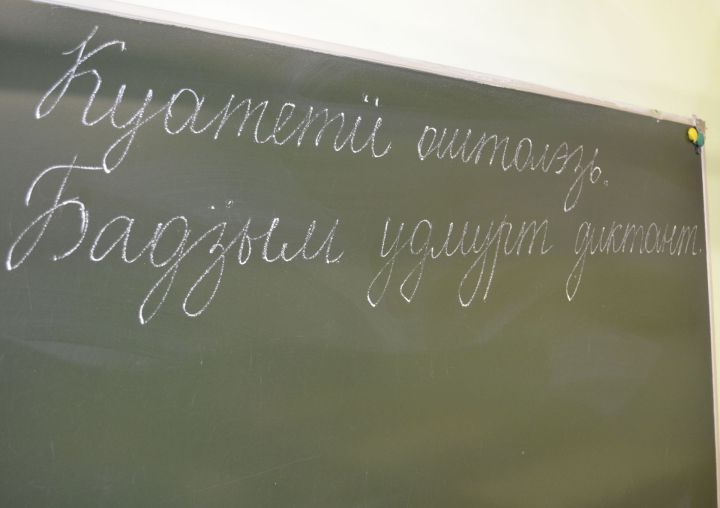 Куатетӥ оштолэзь.
Бадӟым удмурт диктант.